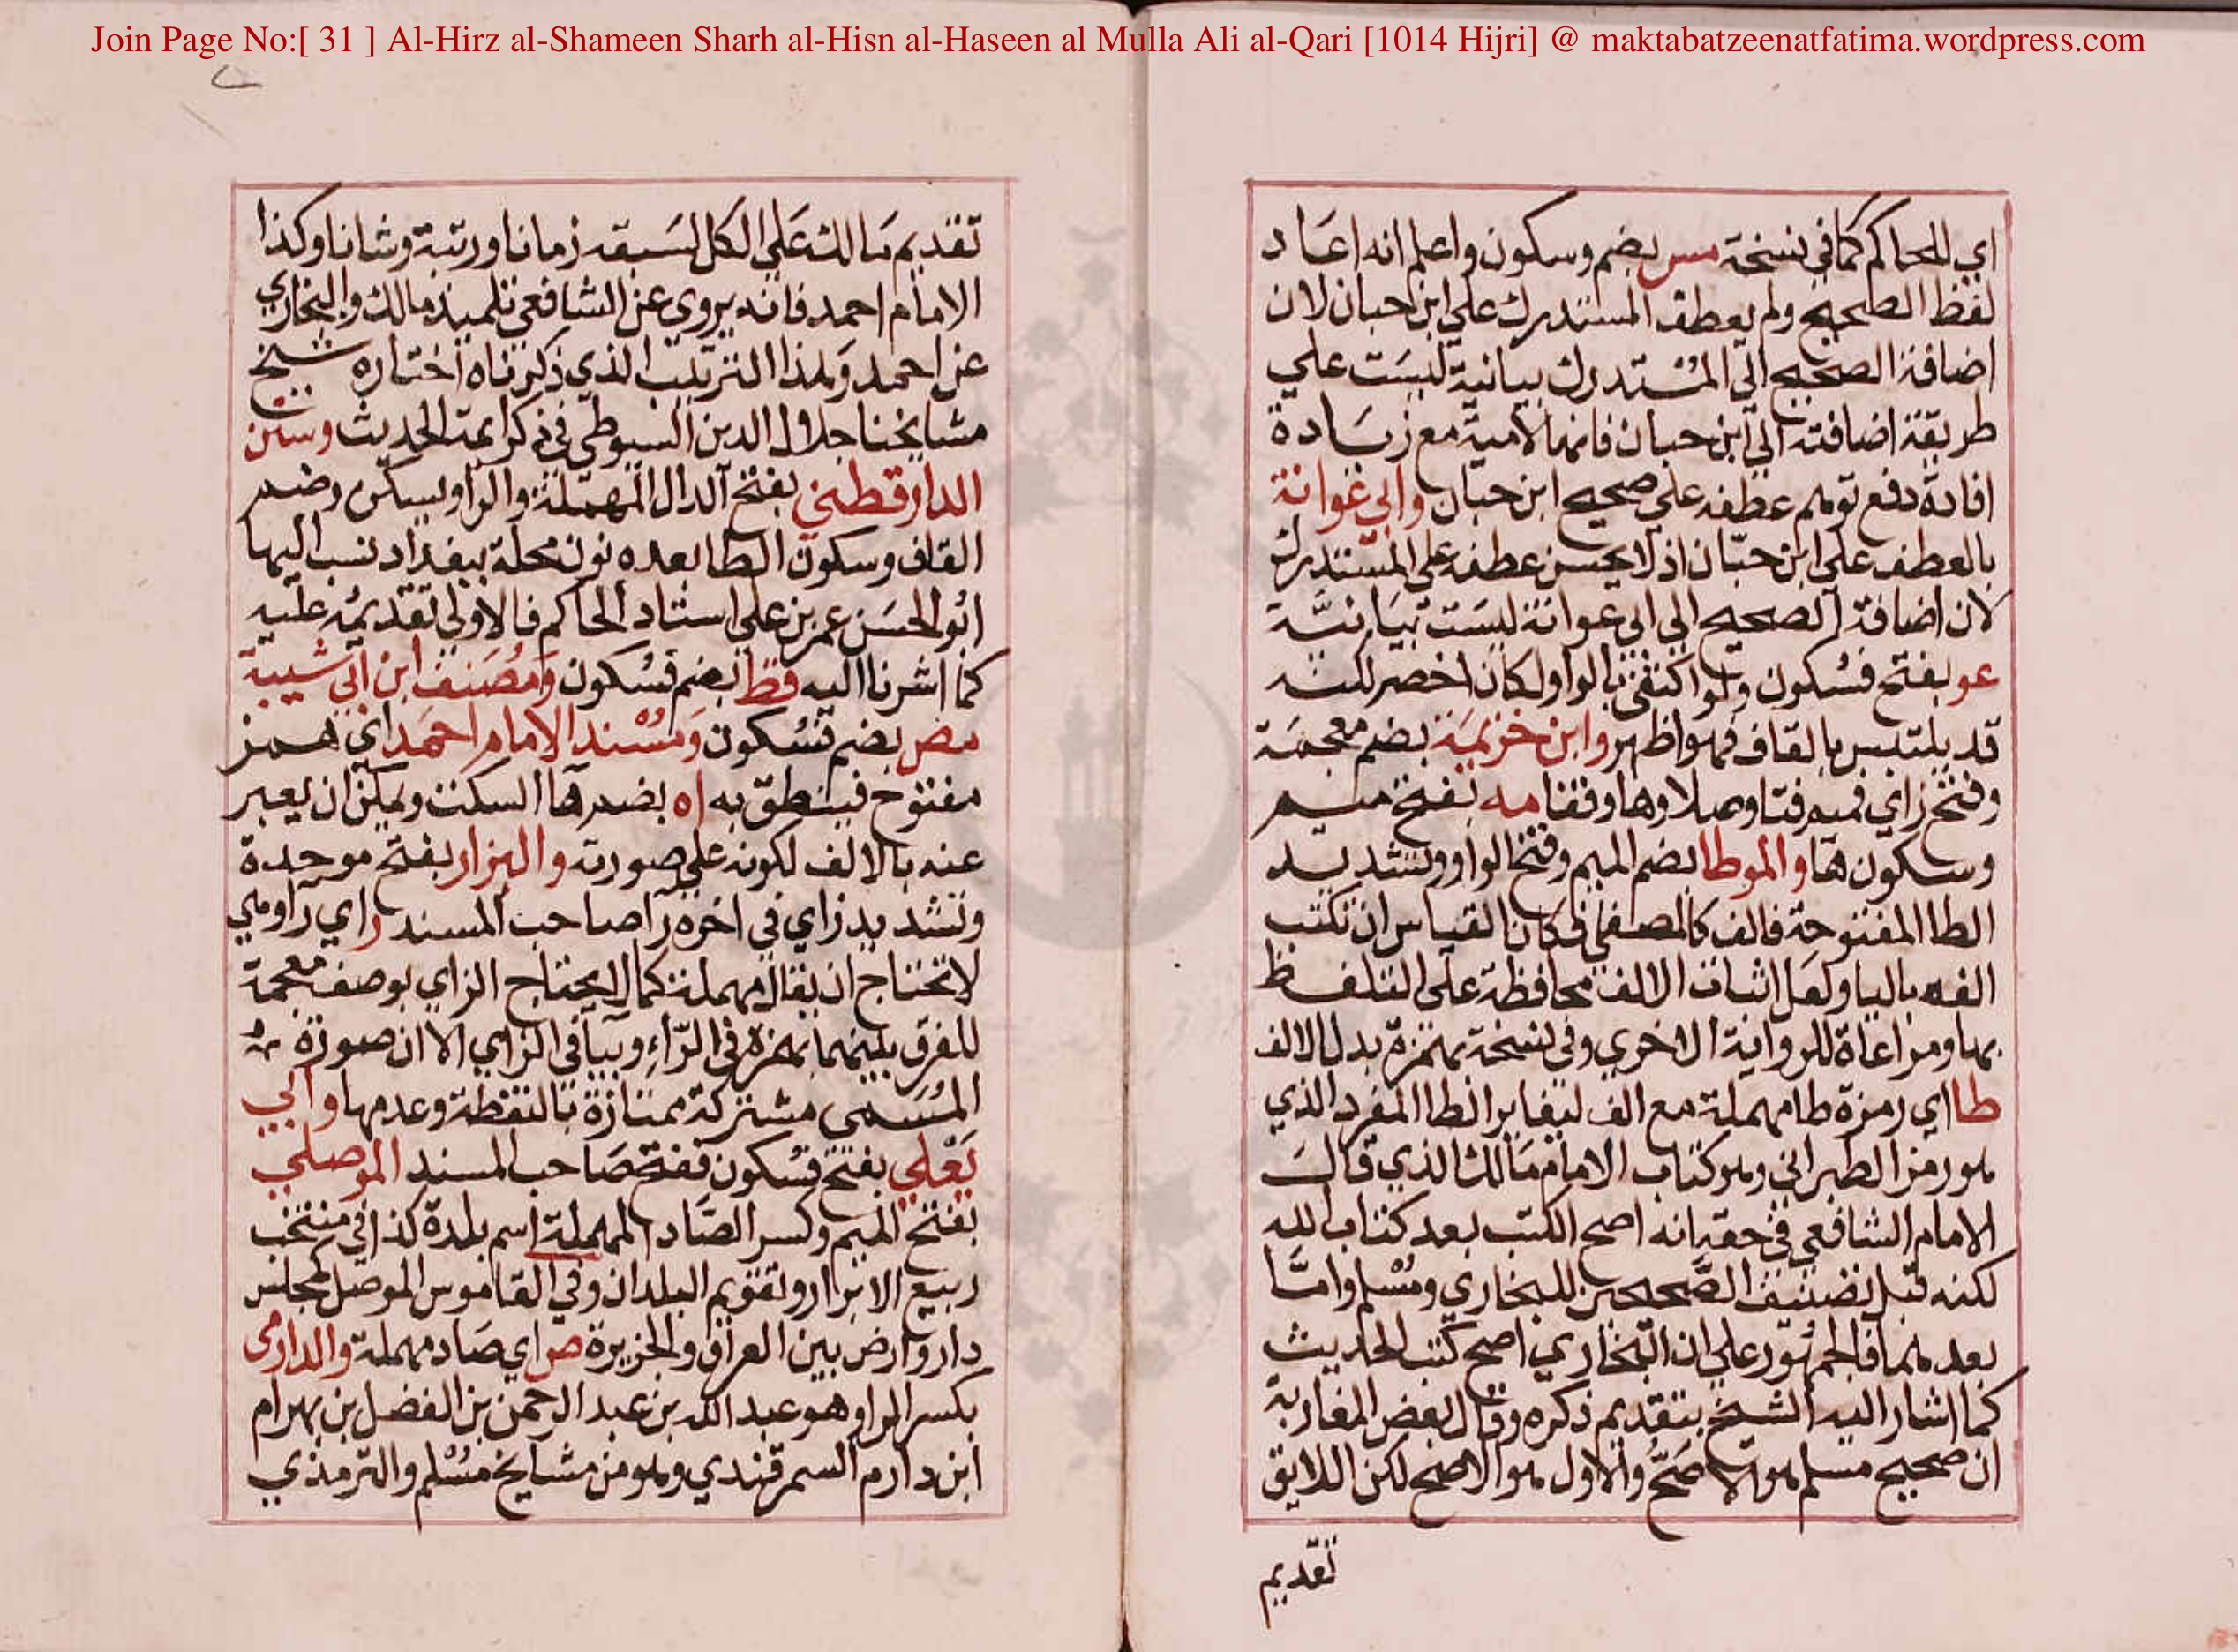 Join Page No:[ 31 ] Al-Hirz al-Shameen Sharh al-Hisn al-Haseen al Mulla Ali al-Qari [1014 Hijri] @ maktabatzeenatfatima.wordpress.com
اي للحاكم كما في نسخة مس بضم وسكون واعلم انه اعاد
لفظ الصحيح ولم يعطف المستدرك على ابن حبان لان
اضافة الصحيح الي المستدرك بيانية ليست علي
طريقة اضافته الي ابن حبان فانها لامية مع زيادة
افادة دفع توهم عطفه علي صحيح ابن حبان وابي عوانة
بالعطف علي ابن حبان اذ لا يحسن عطفه علي المستدرك
لان اضافة الصحيح الي ابي عوانة ليست بيانية
عو بفتح فسكون ولو اكتفي بالواو لكان اخصر لكنه
قد يلتبس بالقاف فهو اظهر وابن خزيمة بضم معجمة
وفتح زاي فميم فتا وصلا وها وقفا مه بفتح ميم
وسكون ها والموطا بضم الميم وفتح الواو وتشديد
الطا المفتوحة فالف كالمصفي فكان القياس ان تكتب
الفه باليا ولعل اثبات الالف محافظة علي التلفظ
بها ومراعاة للرواية الاخري وفي نسخة بهمزة بدل الالف
طا اي رمزه طا مهملة مع الف ليغاير الطا المفرد الذي
هو رمز الطبراني وهو كتاب الامام مالك الذي قال
الامام الشافعي في حقه انه اصح الكتب بعد كتاب الله
لكنه قبل تصنيف الصحيحين للبخاري ومسلم واما
بعدهما فالجمهور علي ان البخاري اصح كتب الحديث
كما اشار اليه الشيخ بتقديم ذكره وقال بعض المغاربة
ان صحيح مسلم هو الاصح والاول هو الاصح لكن اللايق
تقديم
تقديم مالك علي الكل لسبقه زمانا ورتبة وشانا وكذا
الامام احمد فانه يروي عن الشافعي تلميذ مالك والبخاري
عن احمد ولهذا الترتيب الذي ذكرناه اختاره شيخ
مشايخنا جلال الدين السيوطي في ذكر ايمة الحديث وسنن
الدارقطني بفتح الدال المهملة والرا ويسكن وضم
القاف وسكون الطا بعده نون محلة ببغداد نسب اليها
ابو الحسن عمر بن علي استاد الحاكم فالاولي تقديمه عليه
كما اشرنا اليه قط بضم فسكون ومصنف ابن ابي شيبة
مص بضم فسكون ومسند الامام احمد اي همز
مفتوح فينطق به اه بضم ها السكت ويمكن ان يعبر
عنه بالالف لكونه علي صورته والبزار بفتح موحدة
وتشديد زاي في اخره را صاحب المسند ر اي را وهي
لا تحتاج ان يقال مهملة كما لا يحتاج الزاي بوصف معجمة
للفرق بينهما بهمزة في الراء وبيا في الزاي الا ان صورة
المسمي مشتركة ممتازة بالنقطة وعدمها وابي
يعلي بفتح فسكون ففتح صاحب المسند الموصلي
بفتح الميم وكسر الصاد المهملة اسم بلدة كذا في منتخب
ربيع الابرار وتقويم البلدان وفي القاموس الموصل كمجلس
دار وارض بين العراق والجزيرة ص اي صاد مهملة والدارمي
بكسر الرا وهو عبد الله بن عبد الرحمن بن الفضل بن بهرام
ابن دارم السمرقندي وهو من مشايخ مسلم والترمذي